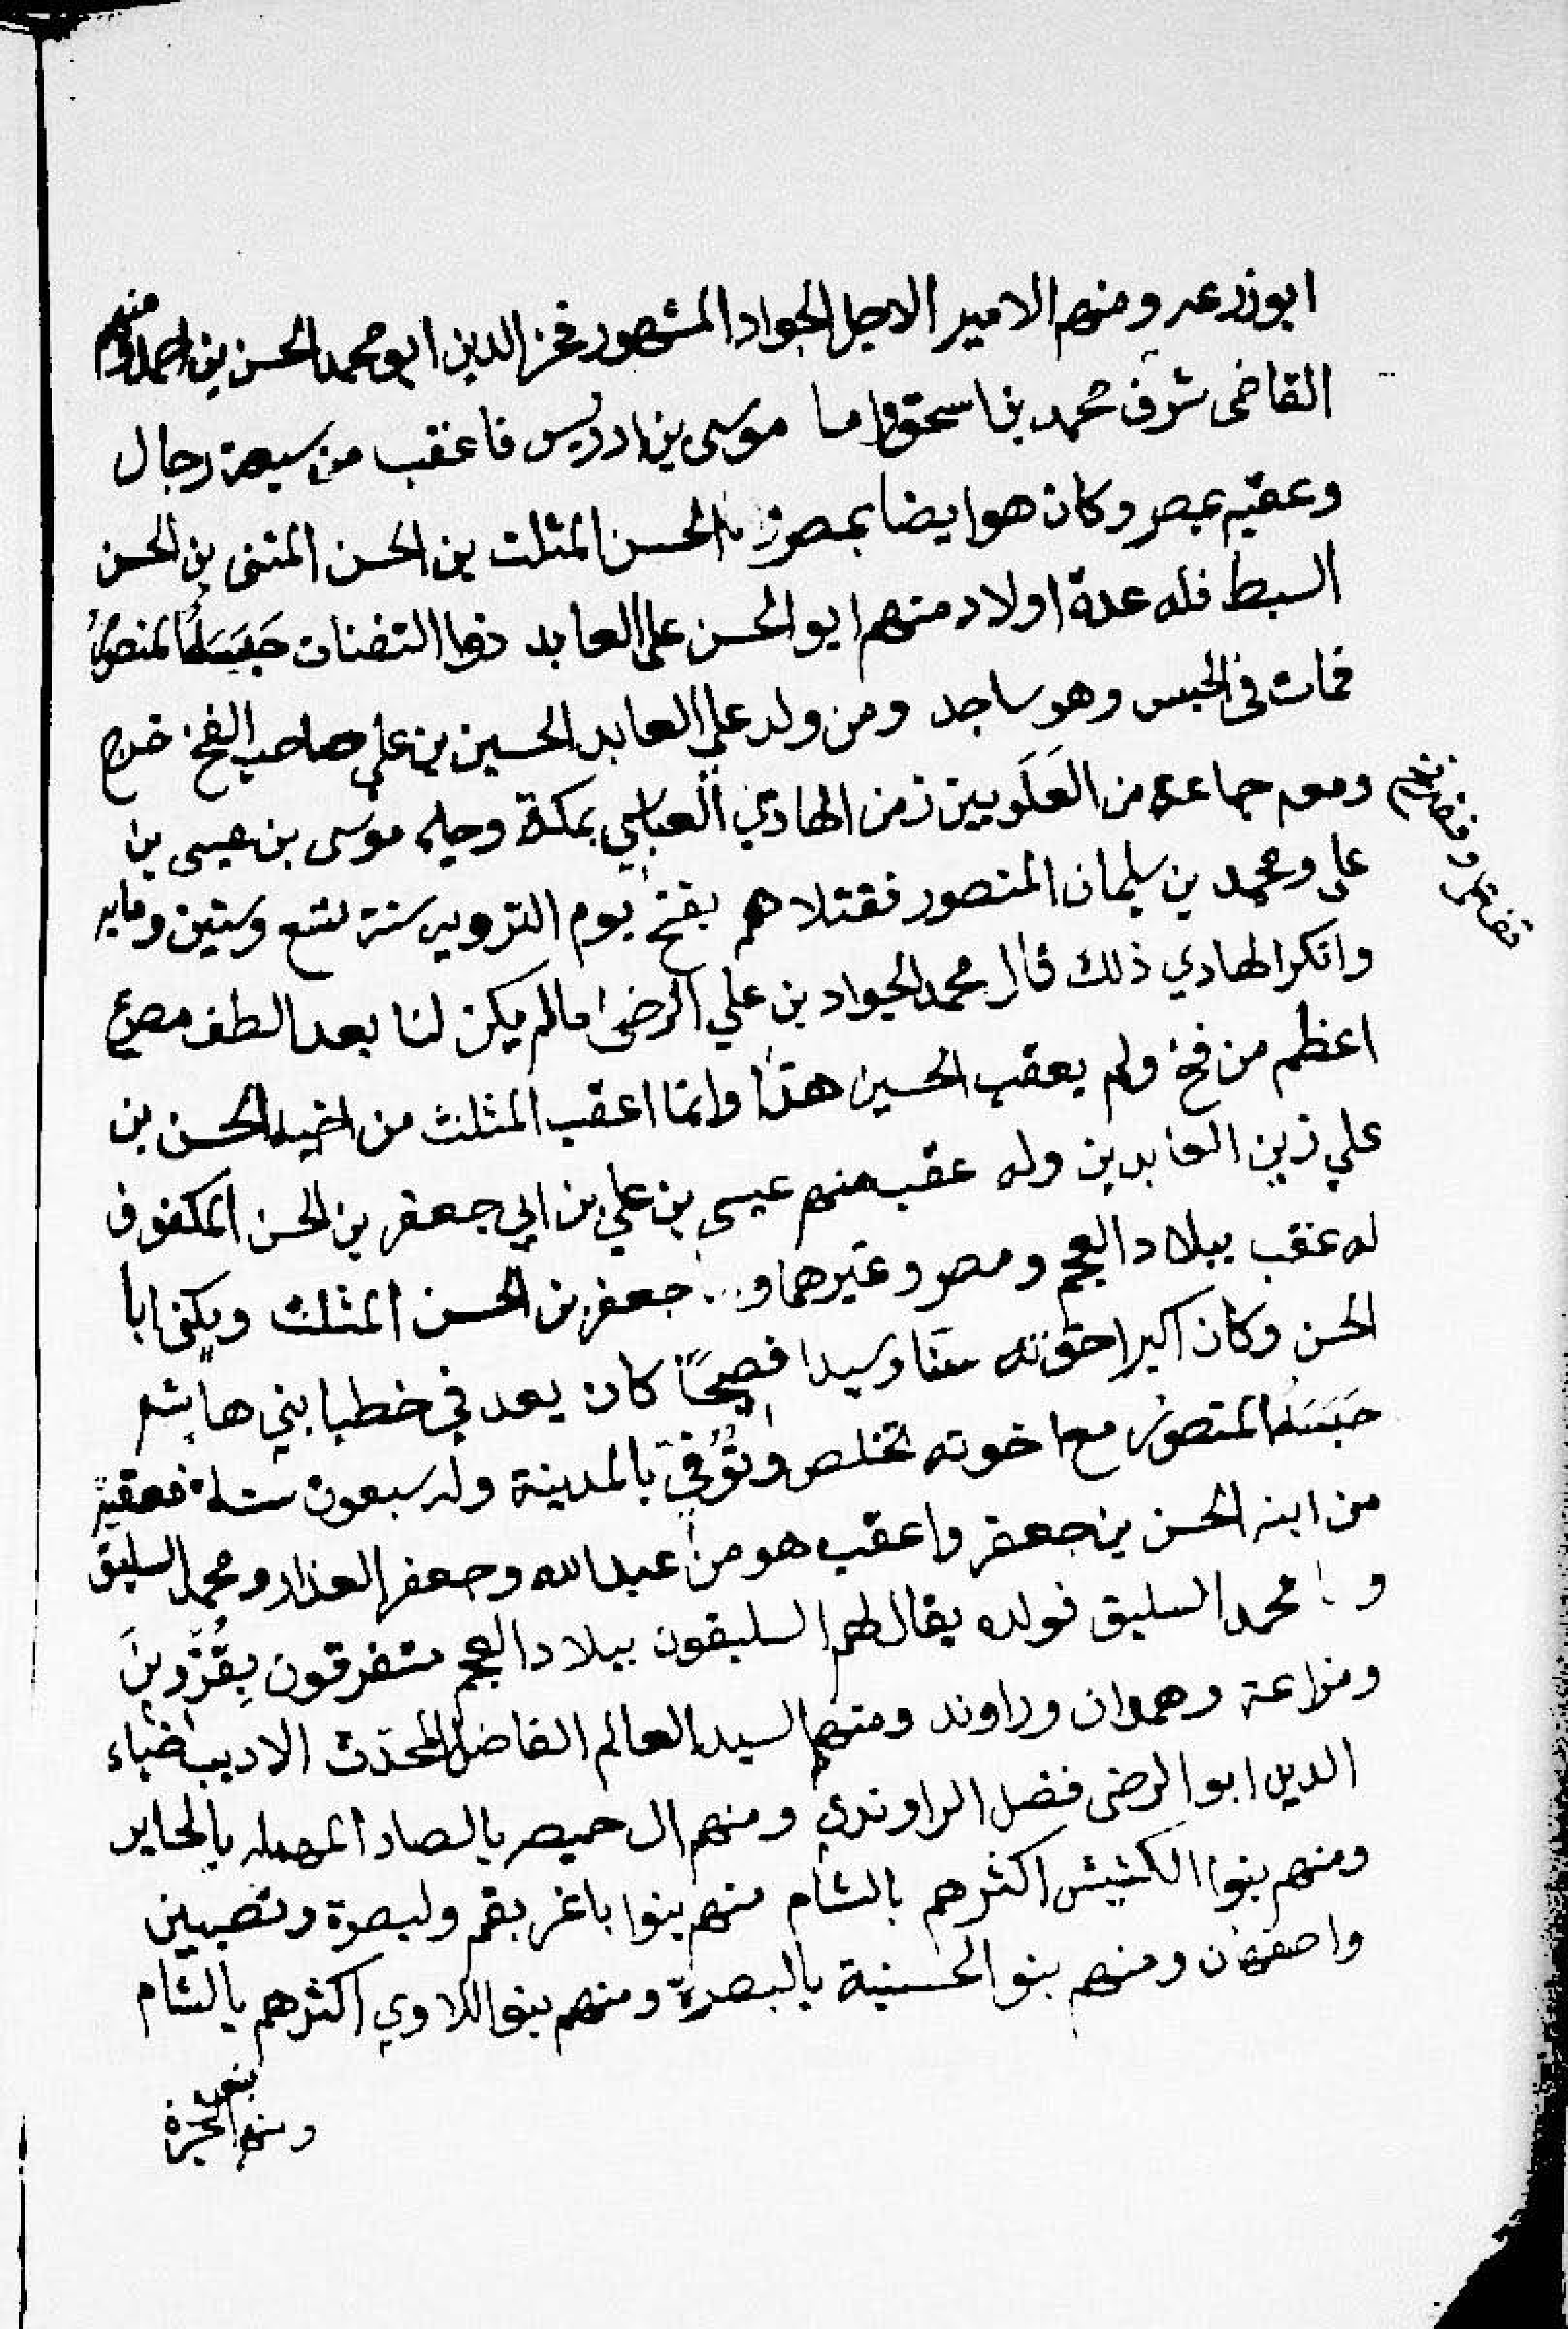 ابوزرعه ومنهم الامير الاجل الجواد المشهور فخر الدين ابو محمد الحسن بن احمد ومنهم
القاضى شرف محمد بن اسحق واما موسى بن ادريس فاعقب من سبعة رجال
وعقبه بمصر وكان هو ايضا بمصر الحسن المثلث بن الحسن المثنى بن الحسن
السبط فله عدة اولاد منهم ابو الحسن على العابد ذوا الثفنات حَبَسَهُ المنصورُ
فمات فى الحبس وهو ساجد ومن ولد علي العابد الحسين بن علي صاحب الفخ خرج
ومعه جماعة من العَلَويين زمن الهادي العباسي بمكة وجاء موسى بن عيسى بن
على ومحمد بن سليمان المنصور فقتلاهم بفخ يوم الترويه سنة تسع وستين ومايه
وانكر الهادي ذلك قال محمد الجواد بن علي الرضى ما لم يكن لنا بعد الطف مصرع
اعظم من فخ ولم يعقب الحسين هذا وانما اعقب المثلث من اخيه الحسن بن
علي زين العابدين وله عقب منهم عيسى بن علي بن ابي جعفر بن الحسن المكفوف
له عقب ببلاد العجم ومصر وغيرهما و جعفر بن الحسن المثلث ويكنى ابا
الحسن وكان اكبر اخوته سنا وسيدا فصيحًا كان يعد في خطبا بني هاشم
حَبَسَهُ المنصورُ مع اخوته تخلص وتُوُفِيَ بالمدينة وله سبعون سنة فعقبه
من ابنه الحسن بن جعفر واعقب هو من عبد الله وجعفر الغدار ومحمد السليق
و محمد السليق فولده يقال لهم السليقون ببلاد العجم متفرقون بِقَزْوِينَ
ومراغة وهمدان وراوند ومنهم السيد العالم الفاضل المحدث الاديب ضياء
الدين ابو الرضى فضل الراوندي ومنهم ال حيصر بالصاد المهمله بالحاير
ومنهم بنوا الكشيش اكثرهم بالشام منهم بنوا باغر بقم ولبصرة ونصيبين
واصفهان ومنهم بنو الحسنية بالبصرة ومنهم بنو اللاوي اكثرهم بالشام
ومنهم بنى